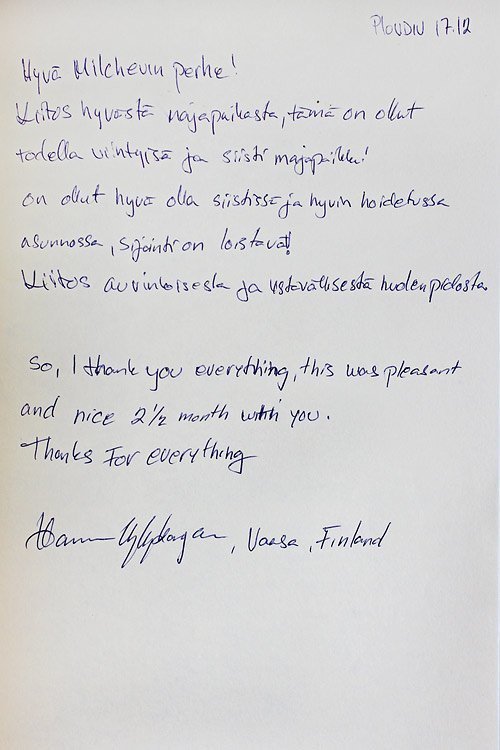 PLOVDIV 17.12
Hyvä Milchevin perhe!
Kiitos hyvästä majapaikasta, tämä on ollut
todella viihtyisä ja siisti majapaikka!
on ollut hyvä olla siistissä ja hyvin hoidetussa
asunnossa, sijainti on loistava!
Kiitos aurinkoisesta ja ystävällisestä huolenpidosta.
So, I thank you everything, this was pleasant
and nice 2 1/2 month with you.
Thanks For everything
, Vaasa, Finland